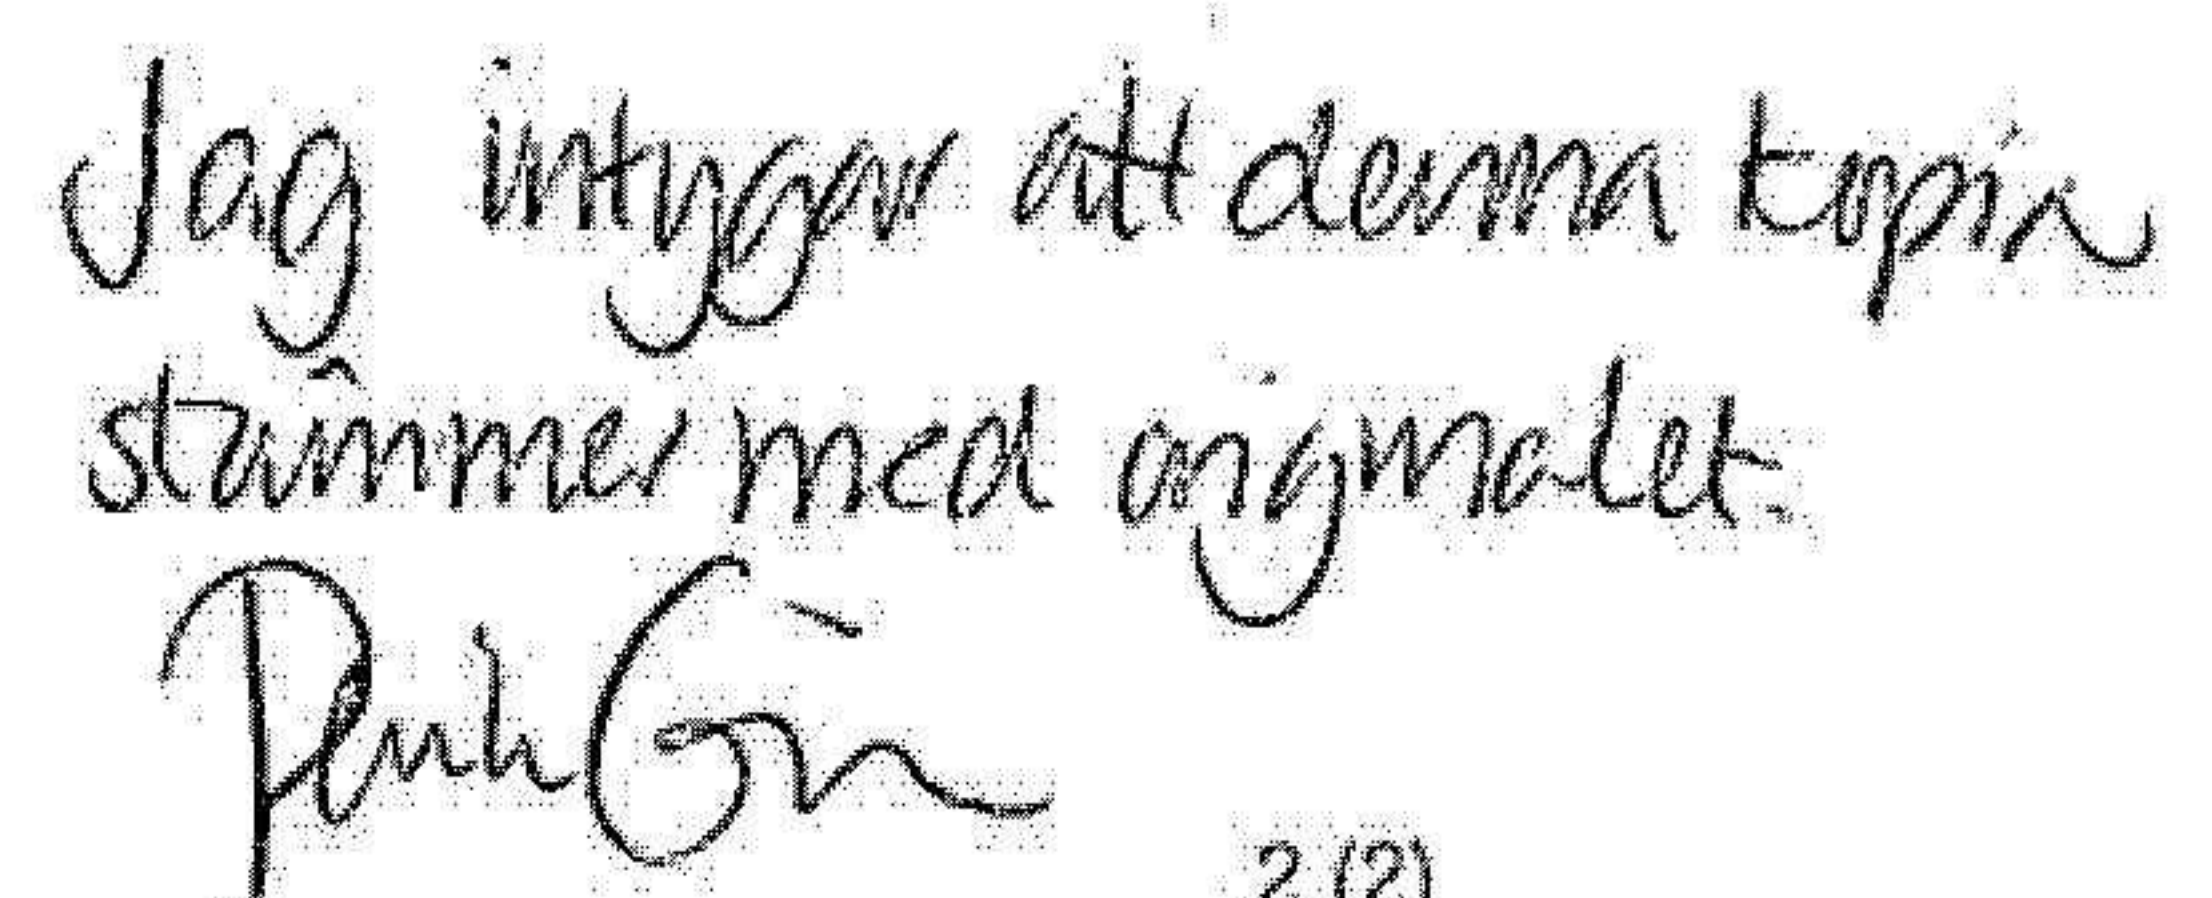 Jag intygar att denna kopia
stämmer med originalet.
2 (2)